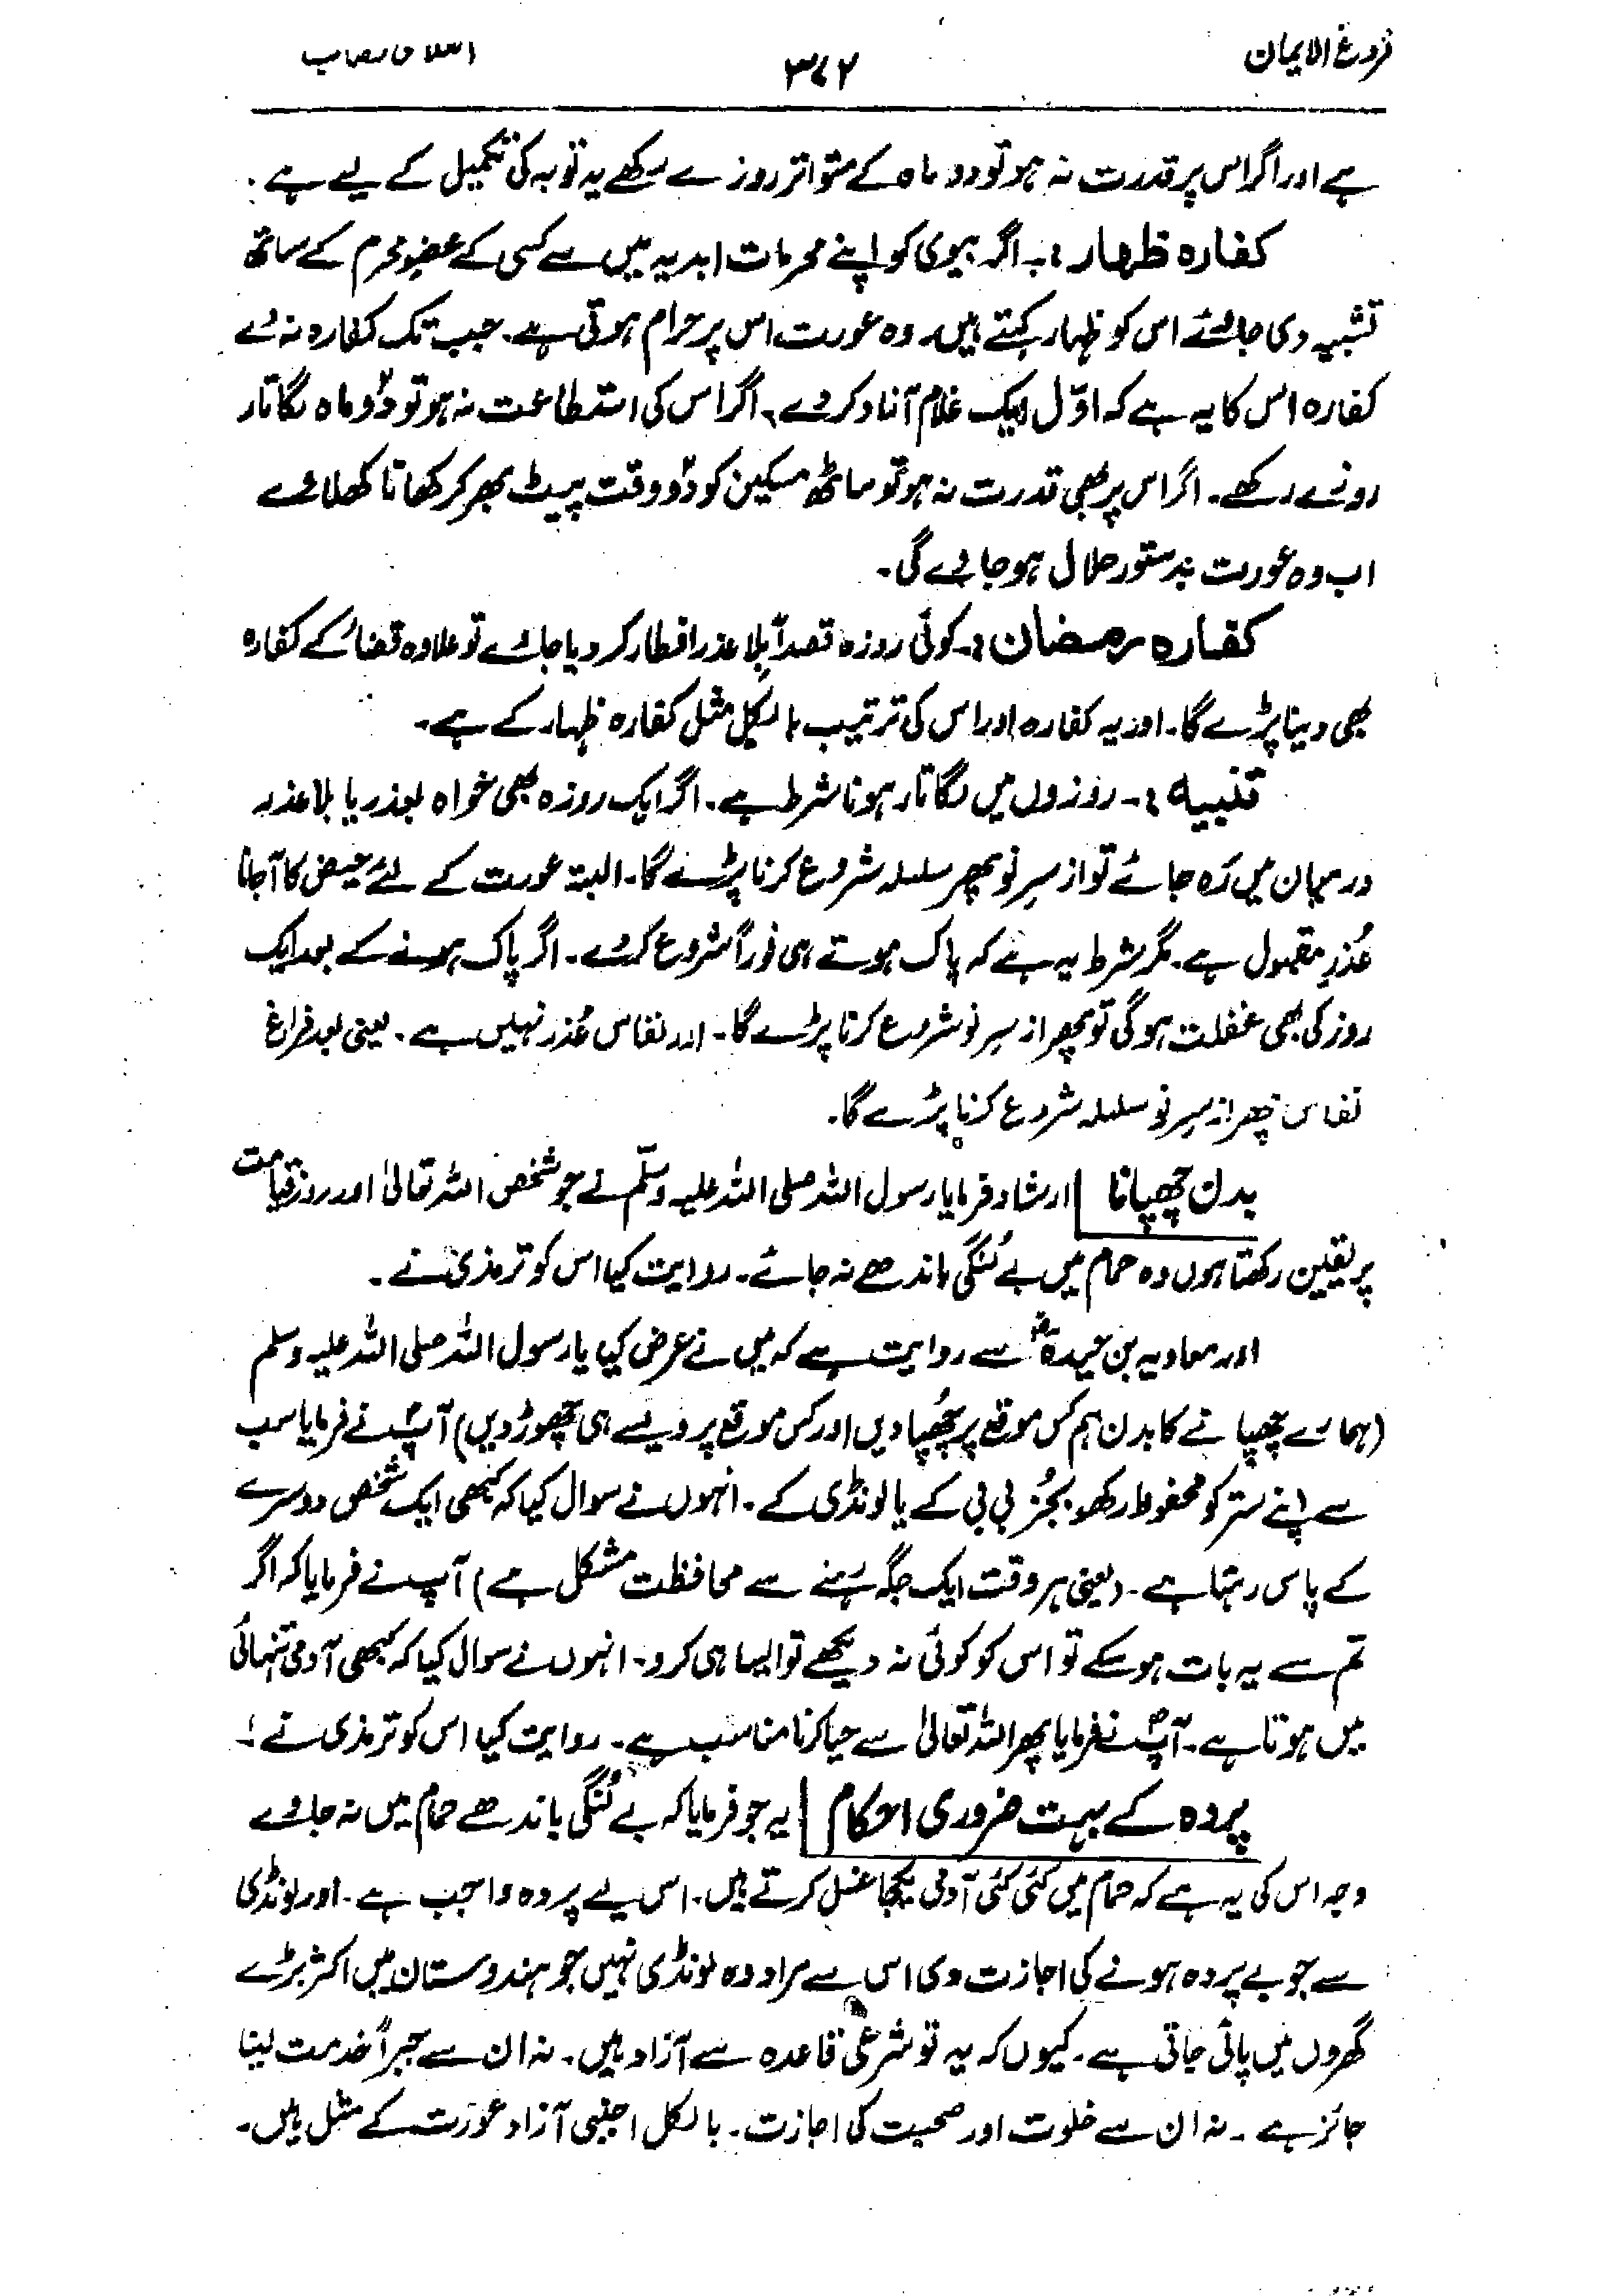 فروغ الایمان
۳۷۲
اصلاحی نصاب
ہے اور اگر اس پر قدرت نہ ہو تو دو ماہ کے متواتر روزے رکھے یہ توبہ کی تکمیل کے لیے ہے۔
کفارہ ظہار :۔ اگر بیوی کو اپنے محرمات ابدیہ میں سے کسی کے عضوِ محرم کے ساتھ
تشبیہ دی جائے اس کو ظہار کہتے ہیں۔ وہ عورت اس پر حرام ہوتی ہے۔ جب تک کفارہ نہ دے
کفارہ اس کا یہ ہے کہ اوّل ایک غلام آزاد کر دے، اگر اس کی استطاعت نہ ہو تو دُو ماہ لگاتار
روزے رکھے۔ اگر اس پر بھی قدرت نہ ہو تو ساٹھ مسکین کو دُو وقت پیٹ بھر کر کھانا کھلاوے
اب وہ عورت بدستور حلال ہو جاوے گی۔
کفارہ رمضان :۔ کوئی روزہ قصداً بلا عذر افطار کر دیا جائے تو علاوہ قضائے کے کفارہ
بھی دینا پڑے گا۔ اور یہ کفارہ اور اس کی ترتیب بالکل مثل کفارہ ظہار کے ہے۔
تنبیہ :۔ روزوں میں لگاتار ہونا شرط ہے۔ اگر ایک روزہ بھی خواہ بعذر یا بلا عذر
درمیان میں رَہ جائے تو از سرِ نو پھر سلسلہ شروع کرنا پڑے گا۔ البتہ عورت کے لئے حیض کا آجانا
عُذرِ مقبول ہے۔ مگر شرط یہ ہے کہ پاک ہوتے ہی فوراً شروع کر دے۔ اگر پاک ہونے کے بعد ایک
روز کی بھی غفلت ہوگی تو پھر از سرِ نو شروع کرنا پڑے گا۔ اور نفاس عُذر نہیں ہے۔ یعنی بعد فراغ
نفاس پھر از سرِ نو سلسلہ شروع کرنا پڑے گا۔
بدن چھپانا ارشاد فرمایا رسول اللہ صلی اللہ علیہ وسلّم نے جو شخص اللہ تعالیٰ اور روز قیامت
پر یقین رکھتا ہوں وہ حمام میں بے لُنگی باندھے نہ جائے۔ روایت کیا اس کو ترمذی نے۔
اور معاویہ بن حیدہؓ سے روایت ہے کہ میں نے عرض کیا یا رسول اللہ صلی اللہ علیہ وسلم
(ہمارے چھپانے کا بدن ہم کس موقع پر چھُپا دیں اور کس موقع پر ویسے ہی چھوڑ دیں) آپؐ نے فرمایا سب
سے اپنے ستر کو محفوظ رکھو بجُز بی بی کے یا لونڈی کے۔ انہوں نے سوال کیا کہ کبھی ایک شخص دوسرے
کے پاس رہتا ہے۔ (یعنی ہر وقت ایک جگہ رہنے سے محافظت مشکل ہے) آپ نے فرمایا کہ اگر
تم سے یہ بات ہو سکے تو اس کو کوئی نہ دیکھے تو ایسا ہی کرو۔ انہوں نے سوال کیا کہ کبھی آدمی تنہائی
میں ہوتا ہے۔ آپؐ نے فرمایا پھر اللہ تعالیٰ سے حیا کرنا مناسب ہے۔ روایت کیا اس کو ترمذی نے :۔
پردہ کے بہت ضروری احکام یہ جو فرمایا کہ بے لُنگی باندھے حمام میں نہ جاوے
وجہ اس کی یہ ہے کہ حمام میں کئی کئی آدمی یکجا غسل کرتے ہیں۔ اس لیے پردہ واجب ہے۔ اور لونڈی
سے جو بے پردہ ہونے کی اجازت دی اس سے مراد وہ لونڈی نہیں جو ہندوستان میں اکثر بڑے
گھروں میں پائی جاتی ہے۔ کیوں کہ یہ تو شرعی قاعدہ سے آزاد ہیں۔ نہ ان سے جبراً خدمت لینا
جائز ہے۔ نہ ان سے خلوت اور صحبت کی اجازت۔ بالکل اجنبی آزاد عورت کے مثل ہیں۔